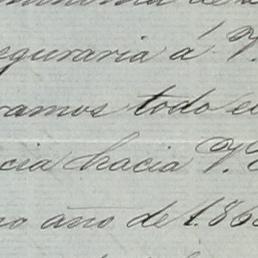 eguraria á V.
ramos todo e
cia hacia V. E
no año de 186